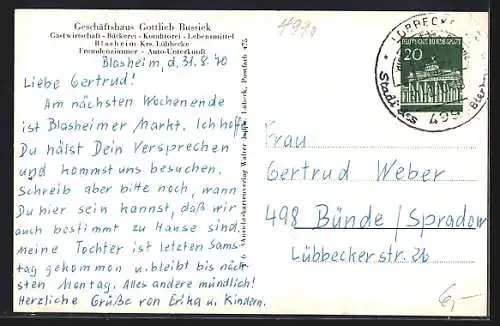 Geschäftshaus Gottlieb Bussiek
Gastwirtschaft - Bäckerei - Konditorei - Lebensmittel
Blasheim Krs. Lübbecke
Fremdenzimmer - Auto-Unterkunft
Blasheim, d. 31.8.70
Liebe Gertrud!
Am nächsten Wochenende
ist Blasheimer Markt. Ich hoffe
Du hälst Dein Versprechen
und kommst uns besuchen.
Schreib aber bitte noch, wann
Du hier sein kannst, daß wir
auch bestimmt zu Hause sind.
Meine Tochter ist letzten Sams-
tag gekommen u. bleibt bis näch-
sten Montag. Alles andere mündlich!
Herzliche Grüße von Erika u. Kindern.
Ansichtskartenverlag Walter Lübeck, Postfach 475
4990
LÜBBECKE
DEUTSCHE BUNDESPOST
20
Stadt des
499
Frau
Gertrud Weber
498 Bünde/Spradow
Lübbeckerstr. 26
6,-